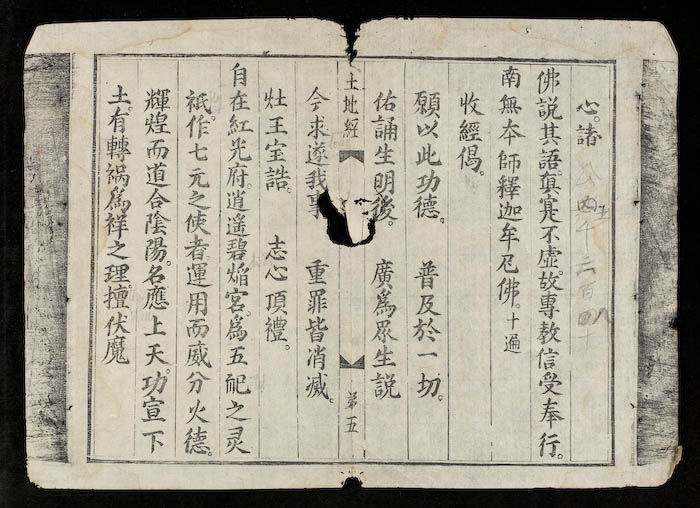 心。諸
佛説其語。真寔不虛。故專教信受奉行。
南無本師釋迦牟尼佛。十遍
收經偈。
願以此功德。 普及於一切。
佑誦生明後。 廣爲眾生説
土地經 第五
今求遂我事 重罪皆消滅。
灶王宝誥。 志心頂禮。
自在紅光府。逍遥碧焰宮。為五祀之灵
祇。作七元之使者。運用而威分火德。
輝煌而道合陰陽。名應上天。功宣下
土。有轉禍爲祥之理。擅伏魔